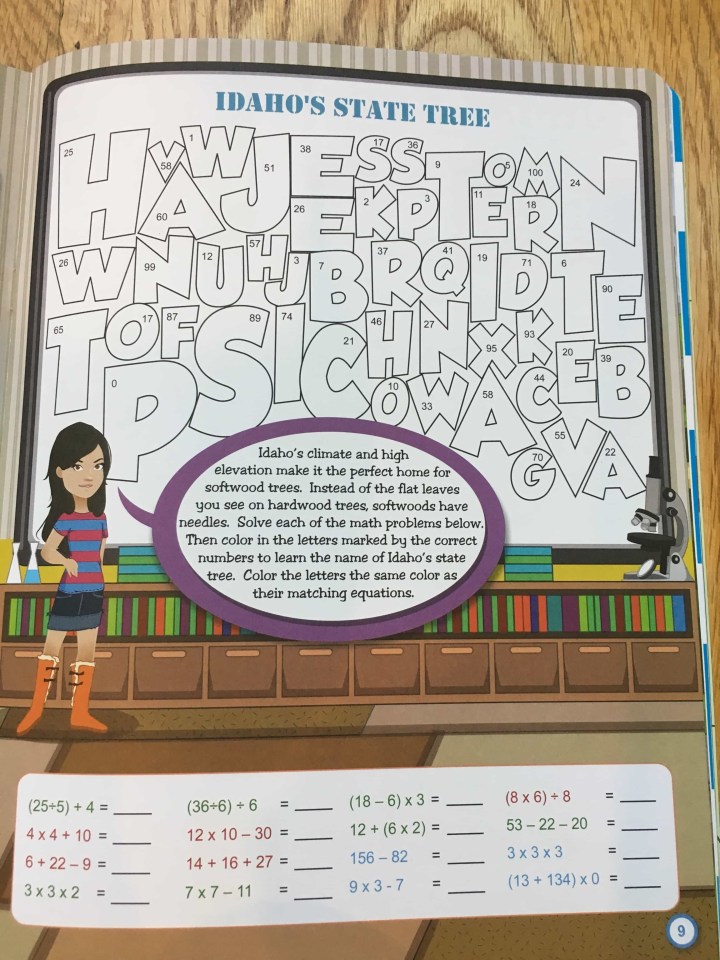 IDAHO'S STATE TREE
25 H
58 Y
1 W
51 J
38 E
17 S
36 S
9 T
5 O
100 M
24 N
60 A
26 E
2 K
3 P
11 E
18 R
26 W
99 N
12 U
57 H
3 J
7 B
37 R
41 Q
19 I
71 D
6 T
90 E
65 T
17 O
87 F
89 S
74 I
21 C
46 H
27 N
95 X
93 K
20 E
39 B
0 P
10 O
33 W
58 A
44 C
70 G
55 V
22 A
Idaho's climate and high
elevation make it the perfect home for
softwood trees. Instead of the flat leaves
you see on hardwood trees, softwoods have
needles. Solve each of the math problems below.
Then color in the letters marked by the correct
numbers to learn the name of Idaho's state
tree. Color the letters the same color as
their matching equations.
(25÷5) + 4 = ____ (36÷6) ÷ 6 = ____ (18 – 6) x 3 = ____ (8 x 6) ÷ 8 = ____
4 x 4 + 10 = ____ 12 x 10 – 30 = ____ 12 + (6 x 2) = ____ 53 – 22 – 20 = ____
6 + 22 – 9 = ____ 14 + 16 + 27 = ____ 156 – 82 = ____ 3 x 3 x 3 = ____
3 x 3 x 2 = ____ 7 x 7 – 11 = ____ 9 x 3 - 7 = ____ (13 + 134) x 0 = ____
9